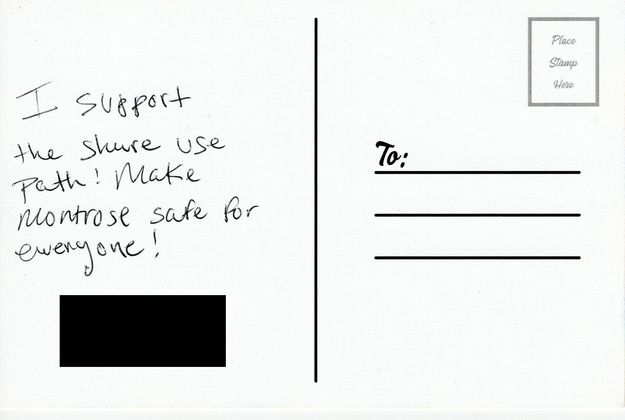 I support
the share use
Path! Make
Montrose safe for
everyone!
Place
Stamp
Here
To: